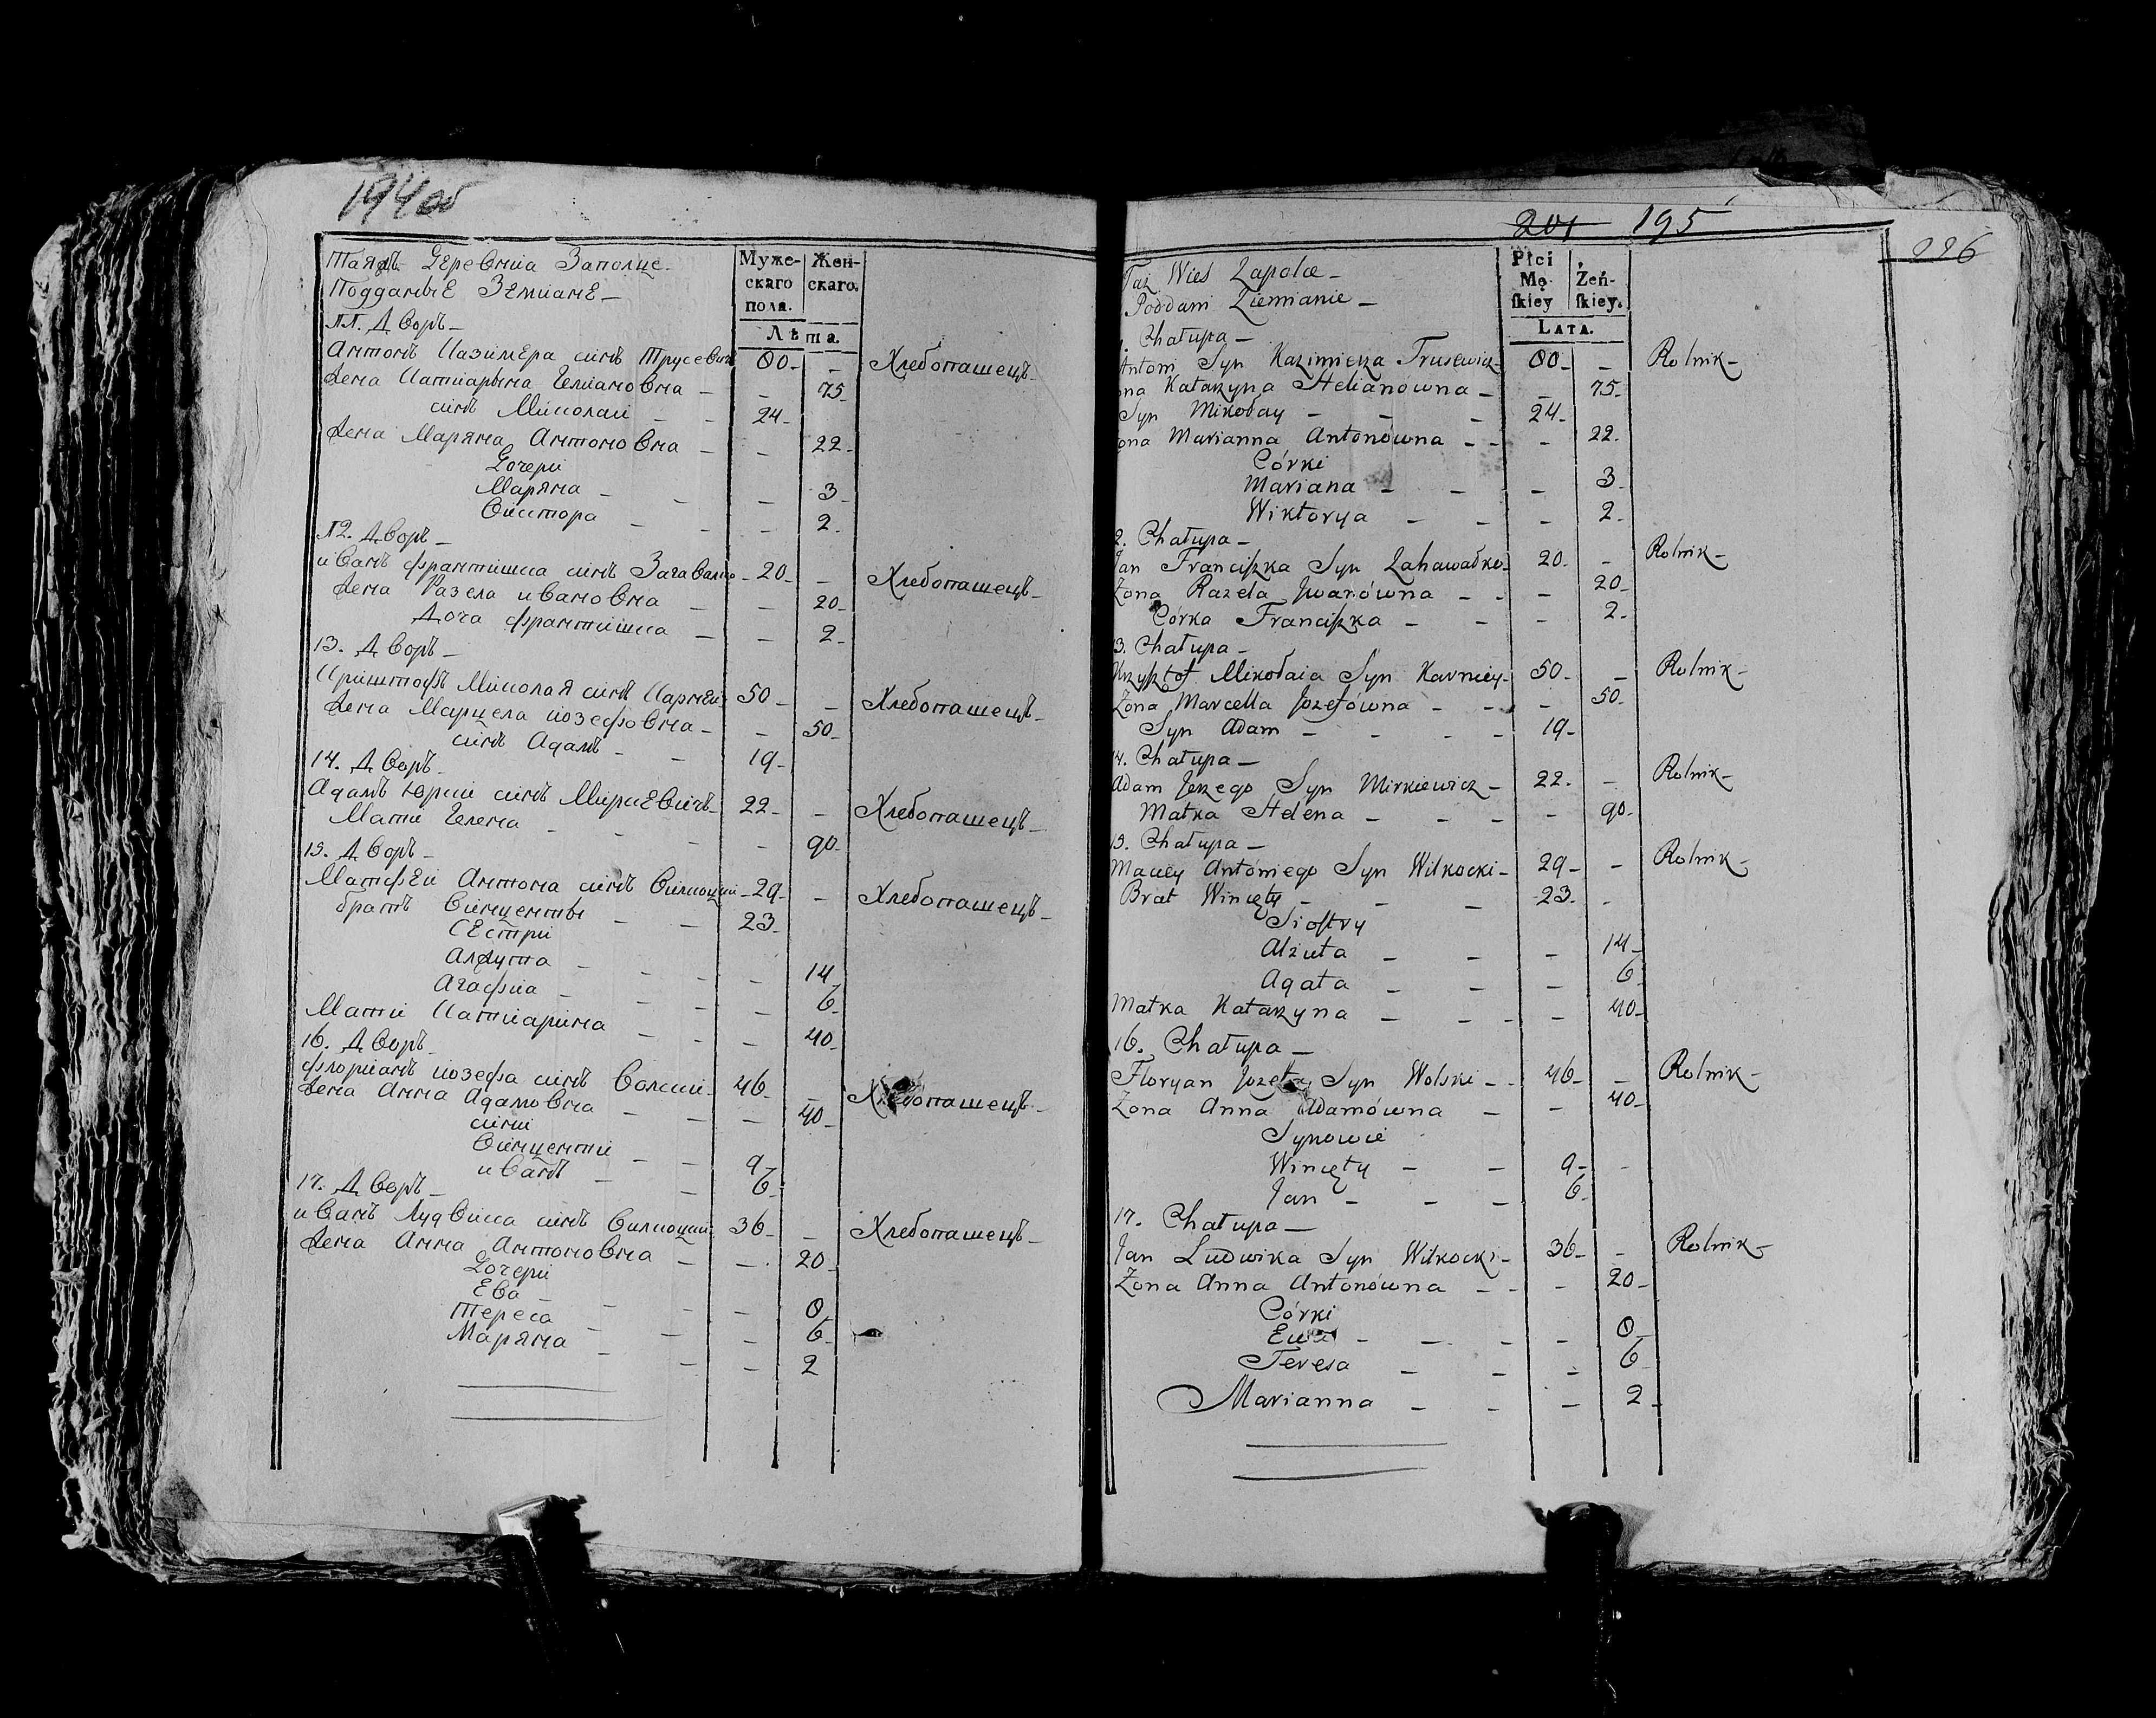 194об
Таяжъ Деревния Заполце
Мужескаго пола.
Женскаго.
Лѣта.
Подданые Земиане
11. Дворъ
Антонъ Казимера синъ Трусевичъ 80 - Хлебопашецъ
Жена Катиарына Гелиановна - 75
синъ Миколай 24
Жена Маряна Антоновна - 22
Дочери
Маряна - 3
Виктора - 2
12. Дворъ
иванъ франтишка синъ Загавалко 20 - Хлебопашецъ
Жена Разела ивановна - 20
Доча франтишка - 2
13. Дворъ
Криштофъ Миколая синъ Карней 50 - Хлебопашецъ
Жена Марцела иозефовна - 50
синъ Адамъ 19
14. Дворъ
Адамъ юрии синъ Миркевичъ 22 - Хлебопашецъ
Мати Гелена - 90
15. Дворъ
Матфеи Антона синъ Вилкоцки 29 - Хлебопашецъ
братъ Винценты 23
Сестри
Алжута - 14
Агафиа - 6
Мати Катиарина - 40
16. Дворъ
флорианъ иозефа синъ Волски 46 - Хлебопашецъ
Жена Анна Адамовна - 40
сини
Винценти 9
иванъ 6
17. Дворъ
иванъ Лудвика синъ Вилкоцки 36 - Хлебопашецъ
Жена Анна Антоновна - 20
Дочери
Ева - 8
Тереса - 6
Маряна - 2
201 195
226
Taż Wieś Zapolce
Płci Męſkiey
Żeńſkiey.
Lata.
Poddani Ziemianie
1. Chałupa
Antoni Syn Kazimierza Trusewicz 80 - Rolnik
ona Katarzyna Helianówna - 75
Syn Mikołay 24
ona Marianna Antonówna - 22
Córki
Mariana - 3
Wiktorya - 2
2. Chałupa
Jan Franciſzka Syn Zahawałko 20 - Rolnik
Zona Razela Jwanówna - 20
Córka Franciſzka - 2
3. Chałupa
Krzyſztof Mikołaia Syn Karniey 50 - Rolnik
Zona Marcella Jozefówna - 50
Syn Adam 19
4. Chałupa
Adam Jerzego Syn Mirkiewicz 22 - Rolnik
Matka Helena - 90
15. Chałupa
Maciey Antoniego Syn Wilkocki 29 - Rolnik
Brat Wincęty 23 -
Sioſtry
Alżuta - 14
Agata - 6
Matka Katarzyna - 40
16. Chałupa
Floryan Jozefa Syn Wolski 46 - Rolnik
Zona Anna Adamówna - 40
Synowie
Wincęty 9 -
Jan 6
17. Chałupa
Jan Ludwika Syn Wilkocki 36 - Rolnik
Zona Anna Antonówna - 20
Córki
Ewa - 8
Teresa - 6
Marianna - 2